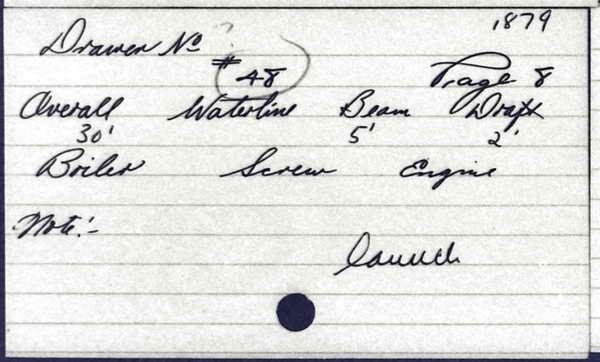 1879
Drawer No
# 48 Page 8
Overall Waterline Beam Draft
30' 5' 2'
Boiler Screw Engine
Note:-
launch